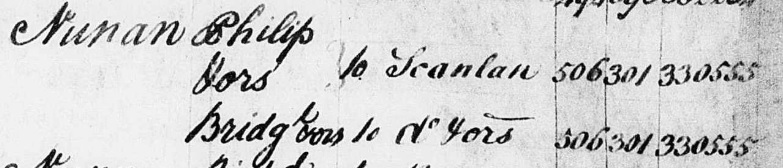 Nunan Philip
Vors to Scanlan 506 301 330 555
Bridgt Vors to do Vors 506 301 330 555